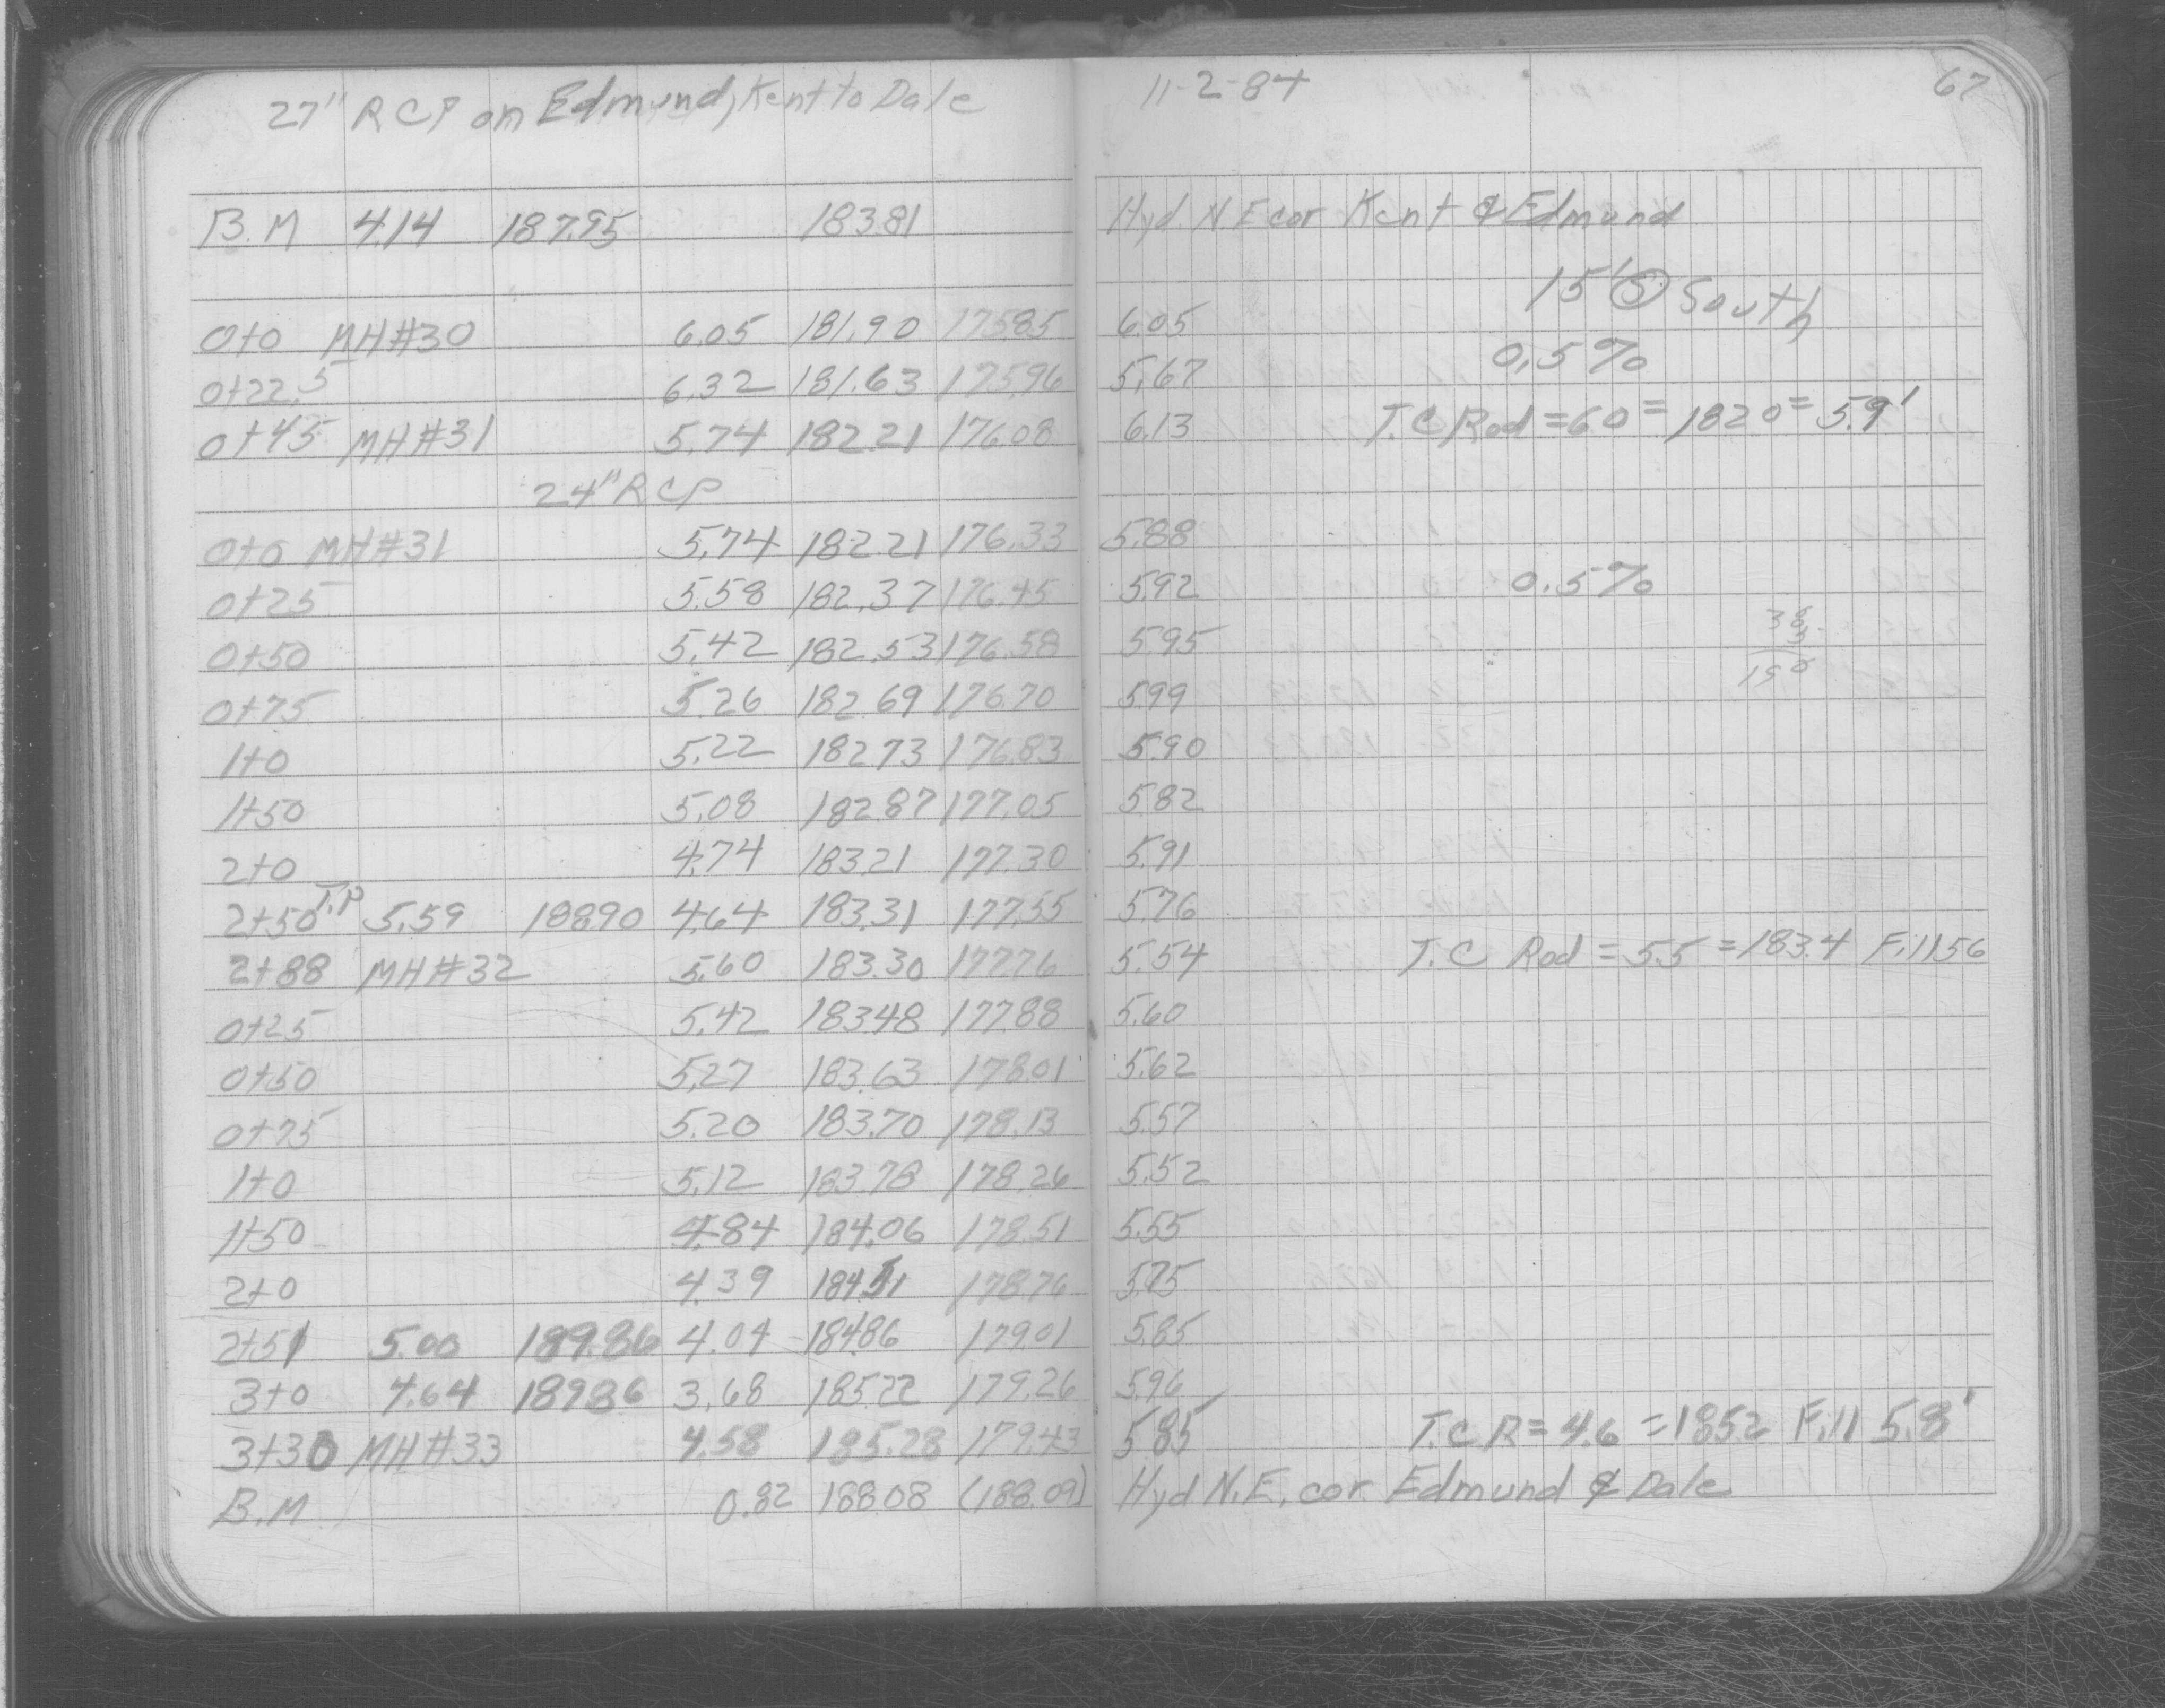 27" RCP on Edmund, Kent to Dale 11-2-84 67
B.M 4.14 187.95 183.81 Hyd. N.E cor Kent & Edmund
15' Ⓢ South
0+0 MH#30 6.05 181.90 175.85 6.05
0.5%
0+22.5 6.32 181.63 175.96 5.67
0+45 MH#31 5.74 182.21 176.08 6.13 T.C Rod = 6.0 = 182.0 = 5.9'
24" RCP
0+0 MH#31 5.74 182.21 176.33 5.88
0+25 5.58 182.37 176.45 5.92 0.5%
0+50 5.42 182.53 176.58 5.95 38
190
0+75 5.26 182.69 176.70 5.99
1+0 5.22 182.73 176.83 5.90
1+50 5.08 182.87 177.05 5.82
2+0 4.74 183.21 177.30 5.91
2+50 T.P 5.59 188.90 4.64 183.31 177.55 5.76
2+88 MH#32 5.60 183.30 177.76 5.54 T.C Rod = 5.5 = 183.4 Fill 5.6
0+25 5.42 183.48 177.88 5.60
0+50 5.27 183.63 178.01 5.62
0+75 5.20 183.70 178.13 5.57
1+0 5.12 183.78 178.26 5.52
1+50 4.84 184.06 178.51 5.55
2+0 4.39 184.51 178.76 5.75
2+51 5.00 189.86 4.04 184.86 179.01 5.85
3+0 4.64 189.86 3.68 185.22 179.26 5.96
3+30 MH#33 4.58 185.28 179.43 5.85 T.C R = 4.6 = 185.2 Fill 5.8'
B.M 0.82 188.08 (188.09) Hyd N.E. cor. Edmund & Dale